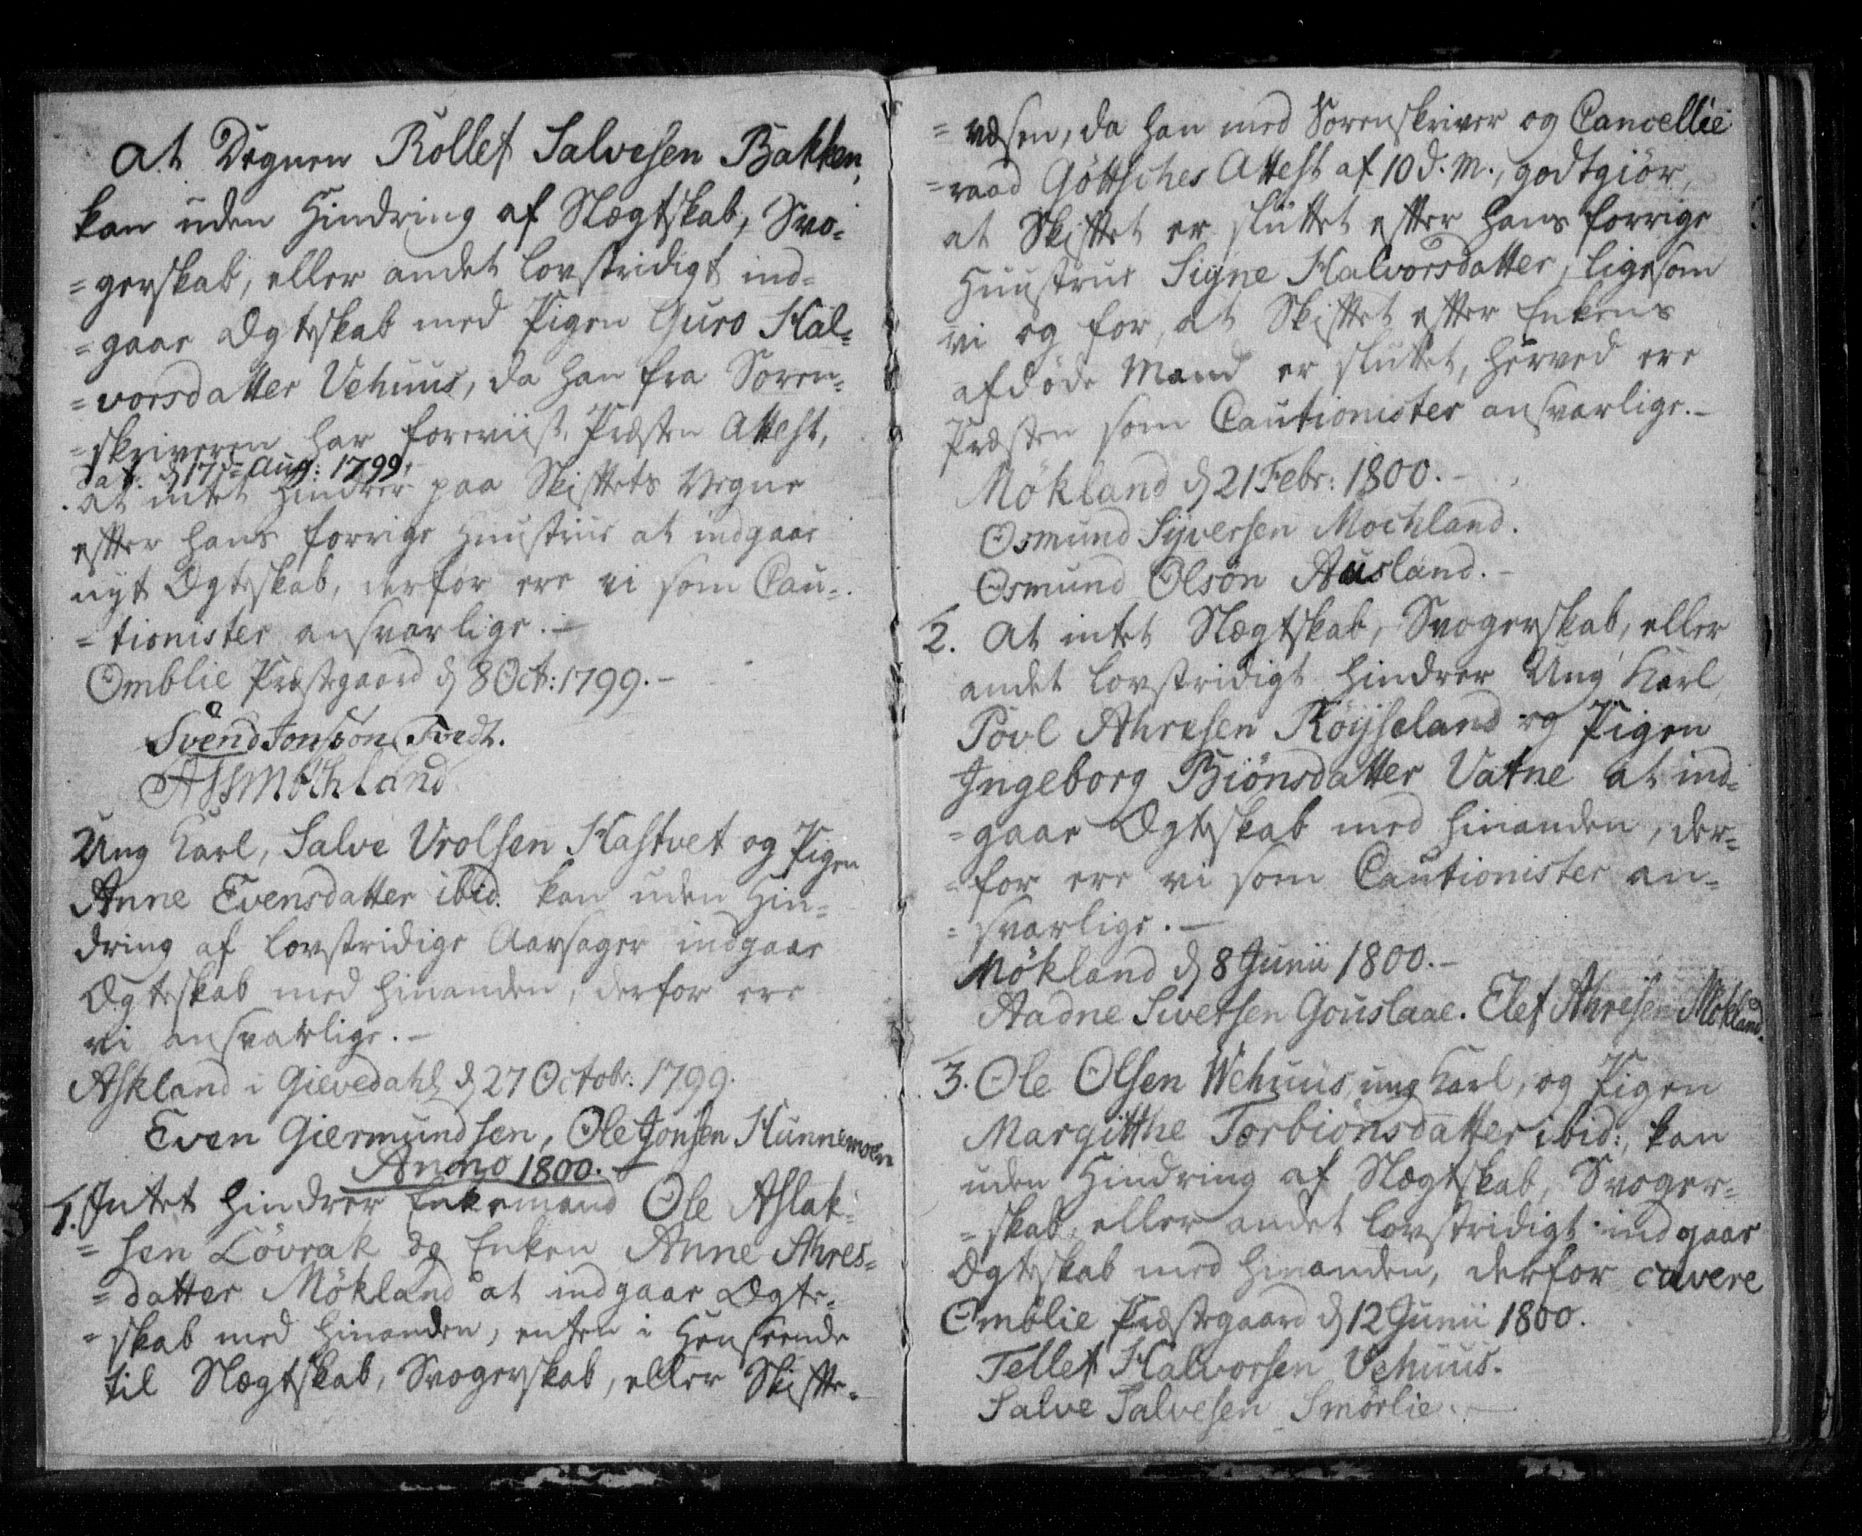 At Degnen Rollef Salvesen Bakken,
kan uden Hindring af Slægtskab, Svo-
=gerskab, eller andet lovstridigt ind-
=gaae Ægteskab med Pigen Guro Hal-
=vorsdatter Vehuus, da han fra Soren-
=skriveren har foreviist Præsten Attest,
dat. d 17de Aug: 1799,
at intet hindrer paa Skiftets Vegne
efter hans forrige Huustrue at indgaae
nyt Ægteskab, derfor ere vi som Cau-
=tionister ansvarlige.-
Omblie Præstegaard d 8 Oct: 1799.-
Svend Jonsøon Tvedt.
Ung Karl, Salve Vrolsen Hastvet og Pigen
Anne Evensdatter ibid. kan uden Hin-
dring af lovstridige Aarsager indgaae
Ægteskab med hinanden, derfor ere
vi ansvarlige.-
Askland i Gievedahl d 27 Octobr: 1799.
Even Giermundsen, Ole Jonsen Hunnemoen
Anno 1800.-
1. Intet hindrer Enkemand Ole Aslak-
=sen Løvrak og Enken Anne Ahres-
=datter Møkland at indgaae Ægte-
=skab med hinanden, enten i Henseende
til Slægtskab, Svogerskab, eller Skifte-
=væsen, da han med Sorenskriver og Cancellie
=raad Gøttsches Attest af 10 d. M., godtgiør,
at Skiftet er sluttet efter hans forrige
Huustrue Signe Halvorsdatter, ligesom
vi og for, at Skiftet efter Enkens
afdøde Mand er sluttet, herved ere
Præsten som Cautionister ansvarlige.-
Møkland d 21 Febr: 1800.-
Osmund Syversen Mochland.
Osmund Olsøn Ausland.-
2. At intet Slægtskab, Svogerskab, eller
andet lovstridigt hindrer Ung Karl
Povl Ahresen Røyseland og Pigen
Ingeborg Biønsdatter Vatne at ind-
=gaae Ægteskab med hinanden, der-
=for ere vi som Cautionister an-
=svarlige.-
Møkland d 8 Junii 1800.-
Aadne Sivetsen Gouslaae. Elef Ahresen Møkland.
3. Ole Olsen Wehuus, ung Karl, og Pigen
Margitthe Torbiønsdatter ibid:, kan
uden Hindring af Slægtskab, Svoger-
=skab, eller andet lovstridigt indgaae
Ægteskab med hinanden, derfor cavere
Omblie Præstegaard d 12 Junii 1800.
Tellef Halvorsen Vehuus.
Salve Salvesen Smørlie.-